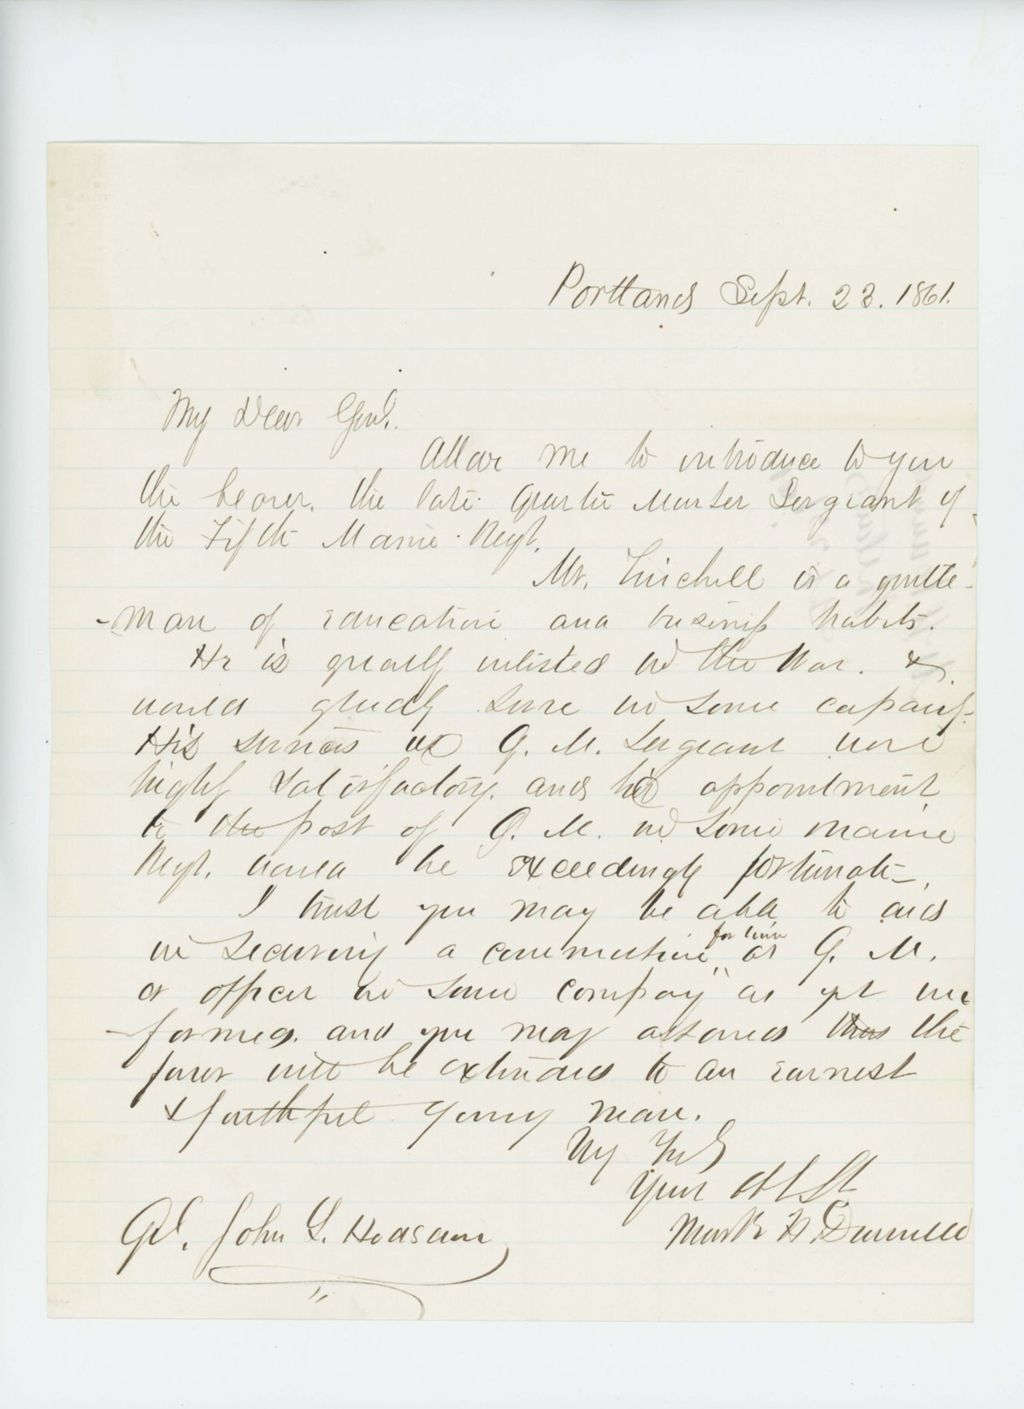 Portland Sept. 23. 1861.
My Dear Genl.
Allow me to introduce to you
the bearer, the late Quarter Master Sergeant of
the Fifth Maine Regt.
Mr. is a gentle-
-man of education and business habits.
He is greatly enlisted in the War. &
would gladly serve in some capacity.
His services as Q. M. Sergeant were
highly satisfactory. and his appointment
to the post of Q. M. in some Maine
Regt. would be exceedingly fortunate.
I trust you may be able to aid
in securing a commission for him as Q. M.
or officer in some company as yet un
-formed. and you may the
favor will be extended to an earnest
& faithful young man.
Yours
Mark H. Dunnell
Gl. John L. Hodsdon